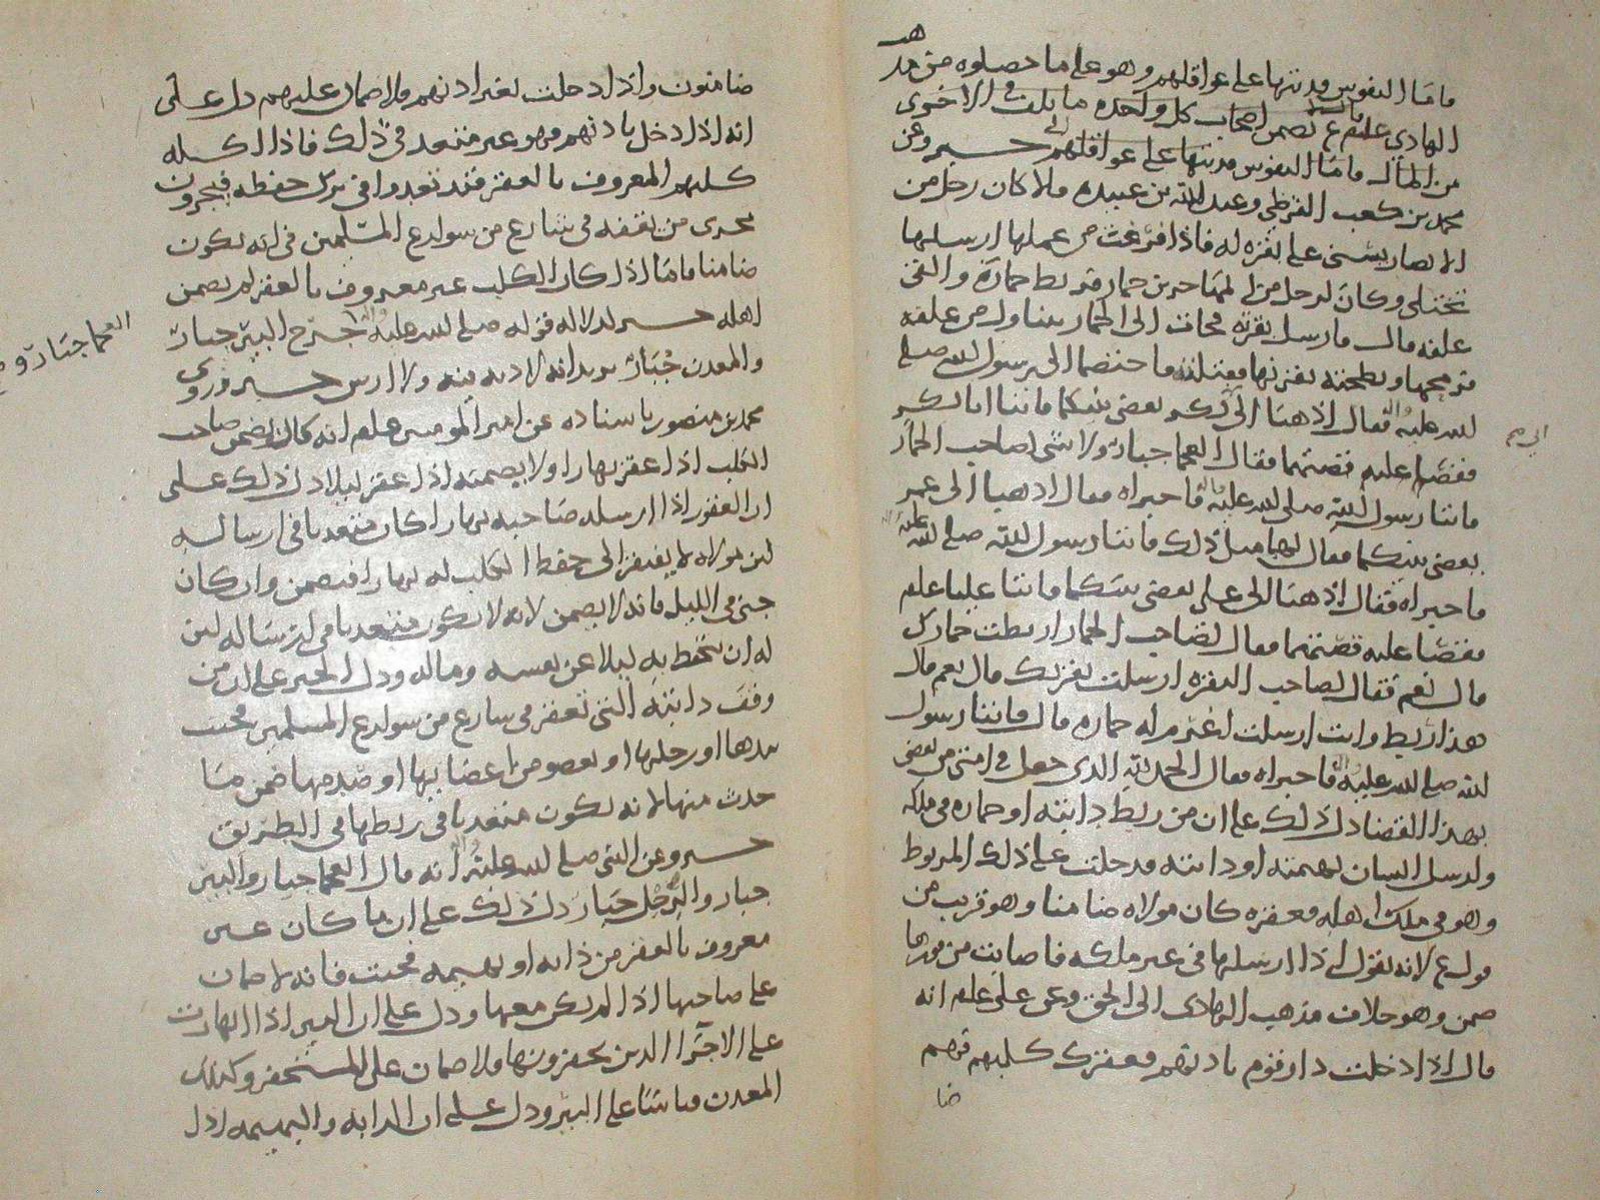 فاما النفوس فديتها على عواقلهم وهو على ما حصلوه من مذهب
الهادي علم ع يضمن اصحاب كل واحده ما تلف في الاخرى
من المال فاما النفوس فديتها على عواقلهم خبر وعن
محمد بن كعب القرظي وعبد الله بن عبيده قالا كان رجل من
الانصار يسني على بقره له فاذا فرغت من عملها ارسلها
تختلى وكان لرجل من المهاجرين حمار قد ربط حماره والقى
علفه قال فارسل بقرته فجات الى الحمار يتناول من علفه
فرمحها ونطحته بقرنها فقتلته فاختصما الى رسول الله صلى
الله عليه واله فقال اذهبا الى ابي بكر يقضي بينكما فاتيا ابا بكر
فقصا عليه قصتهما فقال العجما جبار ولا شي لصاحب الحمار
فاتيا رسول الله صلى الله عليه واله فاخبراه فقال اذهبا الى عمر
يقضي بينكما فقال لهما مثل ذلك فاتيا رسول الله صلى الله عليه
فاخبراه فقال اذهبا الى علي يقضي بينكما فاتيا عليا علم
فقصا عليه قصتهما فقال لصاحب الحمار اربطت حمارك
قال نعم فقال لصاحب البقره ارسلت بقرتك قال نعم قال
هذا ربط وانت ارسلت اغرم له حماره قال فاتيا رسول
الله صلى الله عليه واله فاخبراه فقال الحمد لله الذي جعل في امتي من يقضي
بهذا القضا دل ذلك على ان من ربط دابته او حماره في ملكه
وارسل انسان بهيمته او دابته فدخلت على ذلك المربوط
وهو في ملك اهله فعقره كان مولاه ضامنا وهو قريب من
قول ع لانه يقول اذا ارسلها في غير ملكه فاصابت من فورها
ضمن وهو خلاف مذهب الهادي الى الحق وعن علي علم انه
قال اذا دخلت دار قوم باذنهم فعقرك كلبهم فهم
ضا
ضامنون واذا دخلت بغير اذنهم فلا ضمان عليهم دل على
انه اذا دخل باذنهم فهو غير متعد في ذلك فاذا اكله
كلبهم المعروف بالعقر فقد تعدوا في ترك حفظه فيجرون
مجرى من يقفه في شارع من شوارع المسلمين في انه يكون
ضامنا فاما اذا كان الكلب غير معروف بالعقر لم يضمن
اهله خبر لدلاله قوله صلى الله عليه واله جرح البير جبار
والمعدن جبار يريد انه لا ديه فيه ولا ارش خبر وروى
محمد بن منصور باسناده عن امير المومنين علم انه كان يضمن صاحب
الكلب اذا عقر نهارا ولا يضمنه اذا عقر ليلا دل ذلك على
ان العقور اذا ارسله صاحبه نهارا كان متعديا في ارساله
لان مولاه لا يفتقر الى حفظ الكلب له نهارا فيضمن وان كان
جنى في الليل فانه لا يضمن لانه لا يكون متعديا في ارساله لان
له ان يحفظ به ليلا عن نفسه وماله ودل الخبر على ان من
وقف دابته التي تعقر في شارع من شوارع المسلمين فجنت
بيدها او رجلها او بعضو من اعضايها او صدمها ضمن ما
حدث منها لانه يكون متعديا في ربطها في الطريق
خبر وعن النبي صلى الله عليه واله انه قال العجما جبار والبير
جبار والرجل جبار دل ذلك على ان ما كان غير
معروف بالعقر من دابه او بهيمه فجنت فانه لا ضمان
على صاحبها اذا لم يكن معها ودل على ان البير اذا انهارت
على الاجرا الذين يحفرونها فلا ضمان على المستحفر وكذلك
المعدن قياسا على البير ودل على ان الدابه والبهيمه اذا
العجما جبار و